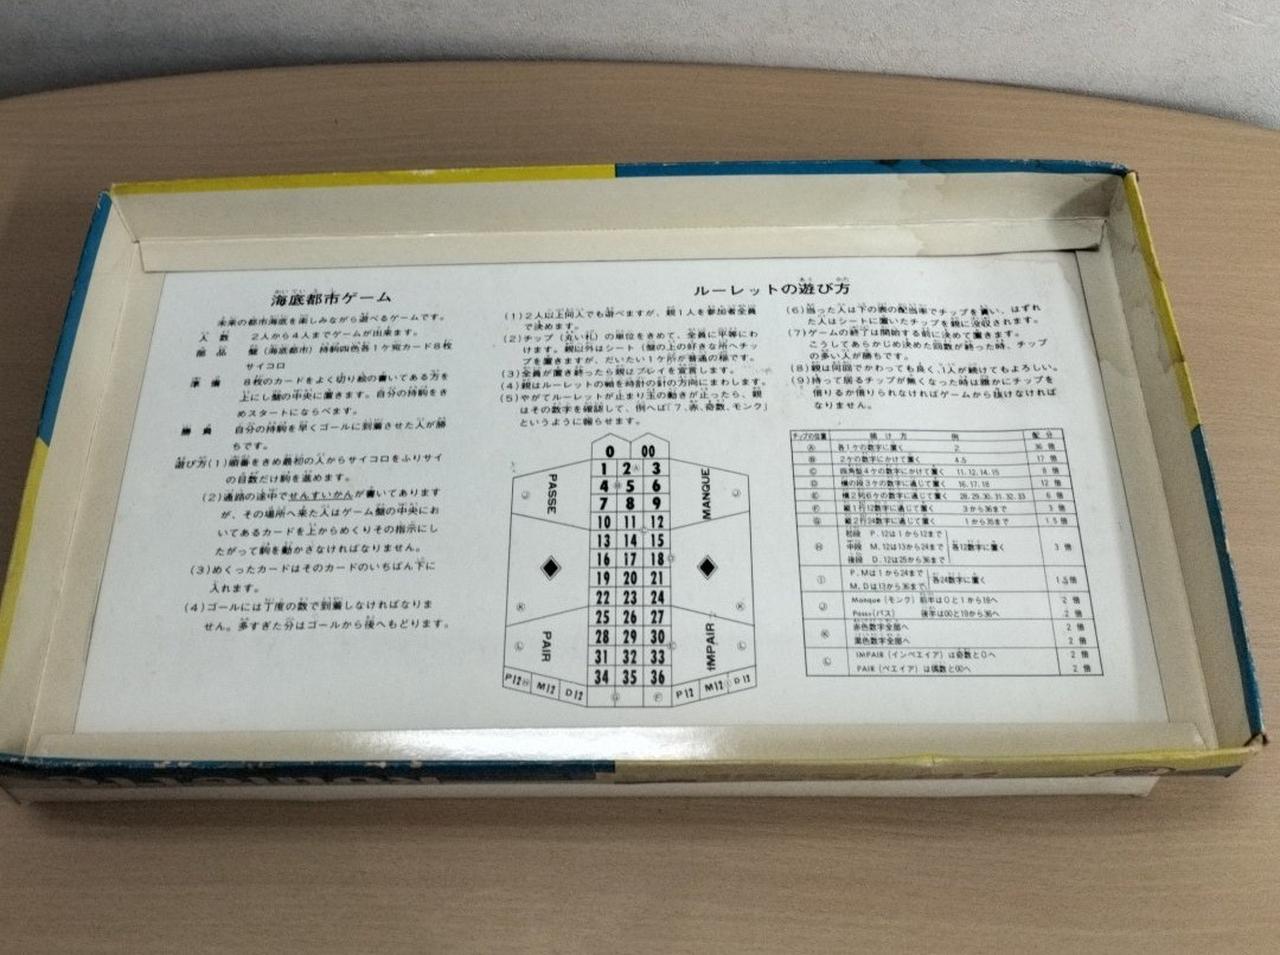 海底都市ゲーム
未来の都市海底を楽しみながら遊べるゲームです。
人数 2人から4人までゲームが出来ます。
部品 盤(海底都市)持駒四色各1ケ宛カード8枚
サイコロ
準備 8枚のカードをよく切り絵の書いてある方を
上にし盤の中央に置きます。自分の持駒をき
めスタートにならべます。
勝負 自分の持駒を早くゴールに到着させた人が勝
ちです。
遊び方(1)順番をきめ最初の人からサイコロをふりサイ
の目数だけ駒を進めます。
(2)通路の途中でせんすいかんが書いてあります
が、その場所へ来た人はゲーム盤の中央にお
いてあるカードを上からめくりその指示にし
たがって駒を動かさなければなりません。
(3)めくったカードはそのカードのいちばん下に
入れます。
(4)ゴールには丁度の数で到着しなければなりま
せん。多すぎた分はゴールから後へもどります。
ルーレットの遊び方
(1)2人以上何人でも遊べますが、親1人を参加者全員
で決めます。
(2)チップ(丸い札)の単位をきめて、全員に平等にわ
けます。親以外はシート(盤の上の好きな所へチッ
プを置きますが、だいたい1ケ所が普通の様です。
(3)全員が置き終ったら親はプレイを宣言します。
(4)親はルーレットの軸を時計の針の方向にまわします。
(5)やがてルーレットが止まり玉の動きが止ったら、親
はその数字を確認して、例へば「7、赤、奇数、モンク」
というように報らせます。
(6)当った人は下の表の配当率でチップを貰い、はずれ
た人はシートに置いたチップを親に没収されます。
(7)ゲームの終了は開始する前に決めて置きます。
こうしてあらかじめ決めた回数が終った時、チップ
の多い人が勝ちです。
(8)親は何回でかわっても良く、1人が続けてもよろしい。
(9)持って居るチップが無くなった時は誰かにチップを
借りるか借りられなければゲームから抜けなければ
なりません。
0 00
1 2 Ⓐ 3
4 Ⓑ 5 6
7 8 9
10 11 12
13 14 15
16 17 18 Ⓓ
19 20 21
22 23 24
25 26 27
28 29 30 Ⓔ
31 32 33
34 35 36
PASSE Ⓙ
MANQUE Ⓙ
Ⓚ Ⓚ
PAIR Ⓛ
IMPAIR Ⓛ
P12 Ⓗ M12 D12 Ⓖ Ⓕ P12 M12 Ⓘ D12
チップの位置 賭け方 例 配分
Ⓐ 各1ケの数字に置く 2 36倍
Ⓑ 2ケの数字にかけて置く 4.5 17倍
Ⓒ 四角盤4ケの数字にかけて置く 11.12.14.15 8倍
Ⓓ 横の段3ケの数字に通じて置く 16.17.18 12倍
Ⓔ 横2列6ケの数字に通じて置く 28.29.30.31.32.33 6倍
Ⓕ 縦1行12数字に通じて置く 3から36まで 3倍
Ⓖ 縦2行24数字に通じて置く 1から35まで 1.5倍
Ⓗ 初段 P.12は1から12まで
中段 M.12は13から24まで 各12数字に置く 3倍
後段 D.12は25から36まで
Ⓘ P.Mは1から24まで
M.Dは13から36まで 各24数字に置く 1.5倍
Ⓙ Manque(モンク) 前半は0と1から18へ 2倍
Passe(パス) 後半は00と19から36へ 2倍
Ⓚ 赤色数字全部へ 2倍
黒色数字全部へ 2倍
Ⓛ IMPAIR(インペイア)は奇数と0へ 2倍
PAIR(ペエイア)は偶数と00へ 2倍